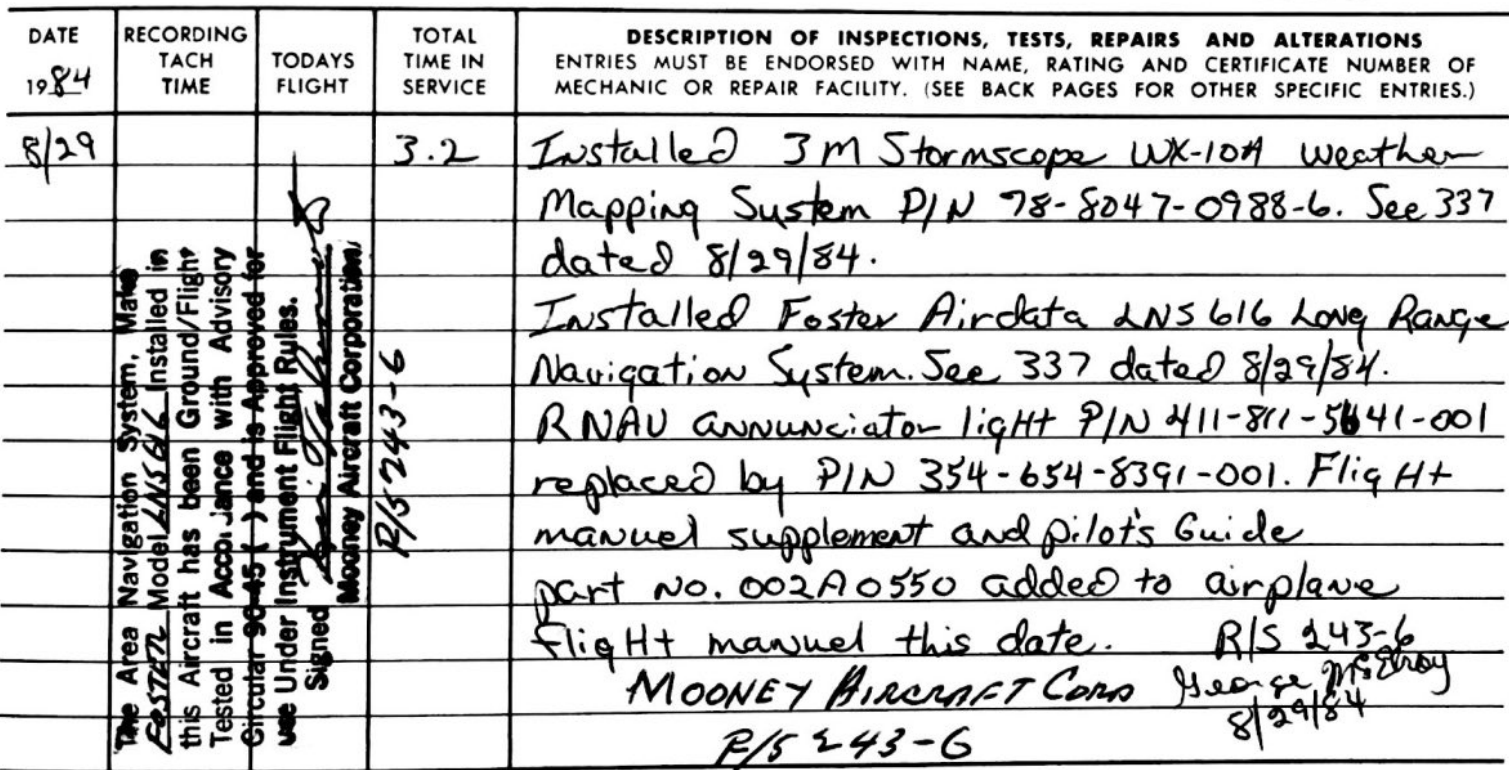 DATE
1984
RECORDING
TACH
TIME
TODAYS
FLIGHT
TOTAL
TIME IN
SERVICE
DESCRIPTION OF INSPECTIONS, TESTS, REPAIRS AND ALTERATIONS
ENTRIES MUST BE ENDORSED WITH NAME, RATING AND CERTIFICATE NUMBER OF
MECHANIC OR REPAIR FACILITY. (SEE BACK PAGES FOR OTHER SPECIFIC ENTRIES.)
8/29
3.2
Installed 3M Stormscope WX-10A Weather
Mapping System P/N 78-8047-0988-6. See 337
dated 8/29/84.
Installed Foster Airdata LNS 616 Long Range
Navigation System. See 337 dated 8/29/84.
RNAV annunciator light P/N 411-811-5641-001
replaced by P/N 354-654-8391-001. Flight
manuel supplement and pilot's Guide
part no. 002A0550 added to airplane
flight manuel this date. R/S 243-6
MOONEY AIRCRAFT CORP George McElroy
8/29/84
R/S 243-6
The Area Navigation System, Make
FOSTER Model LNS616 Installed in
this Aircraft has been Ground/Flight
Tested in Accordance with Advisory
Circular 90-45 ( ) and is Approved for
use Under Instrument Flight Rules.
Signed
Mooney Aircraft Corporation
R/S 243-6